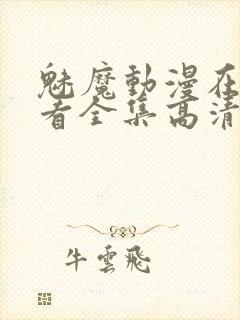 魅魔動漫在
看全集高清
牛雲飛